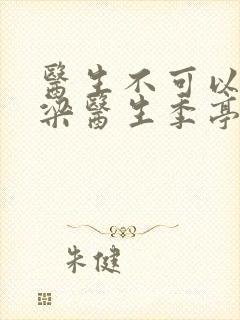 醫生不可以
梁醫生季亭
朱健